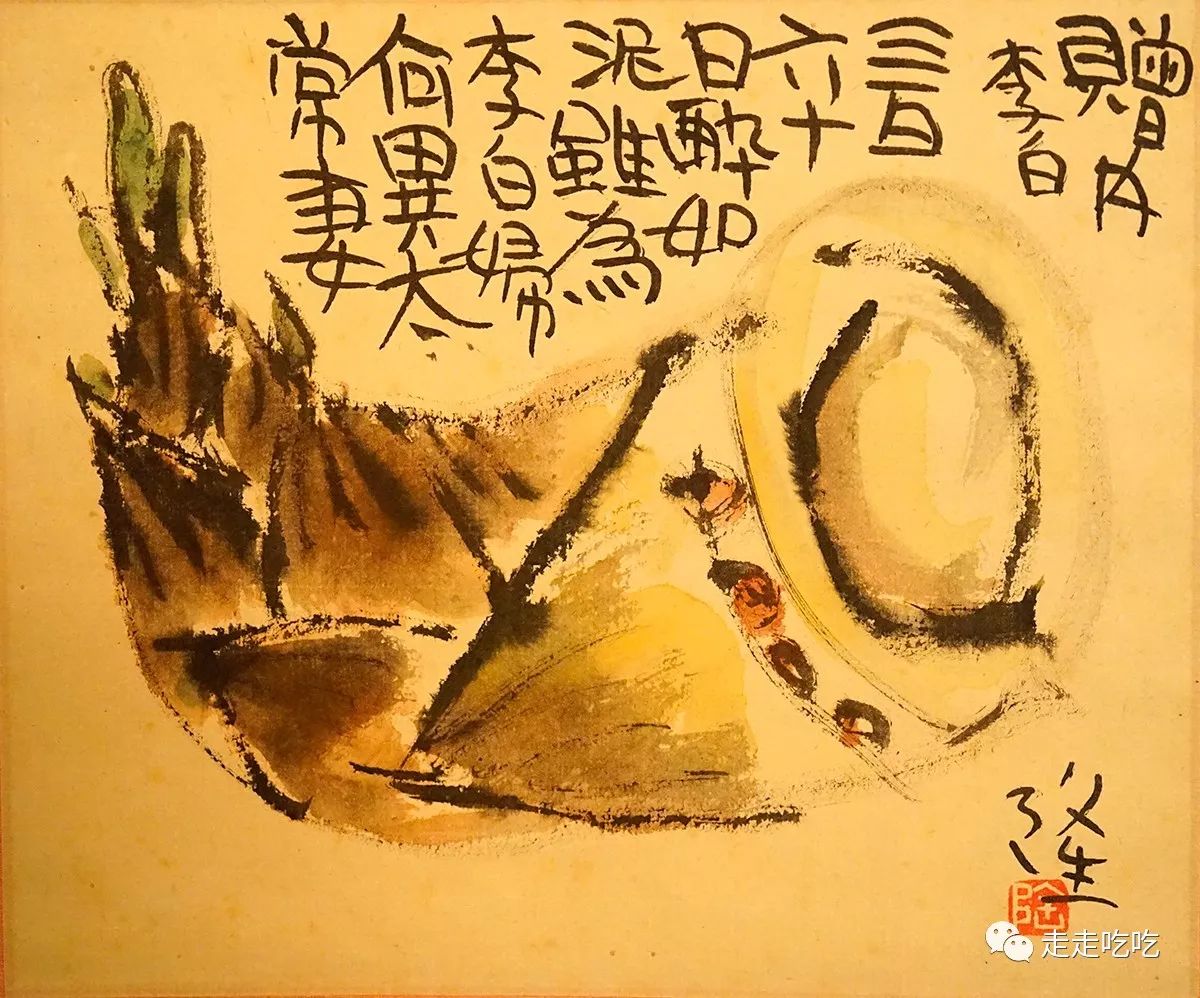 贈内
李白
三百
六十
日醉如
泥雖為
李白婦
何異太
常妻
隆
走走吃吃